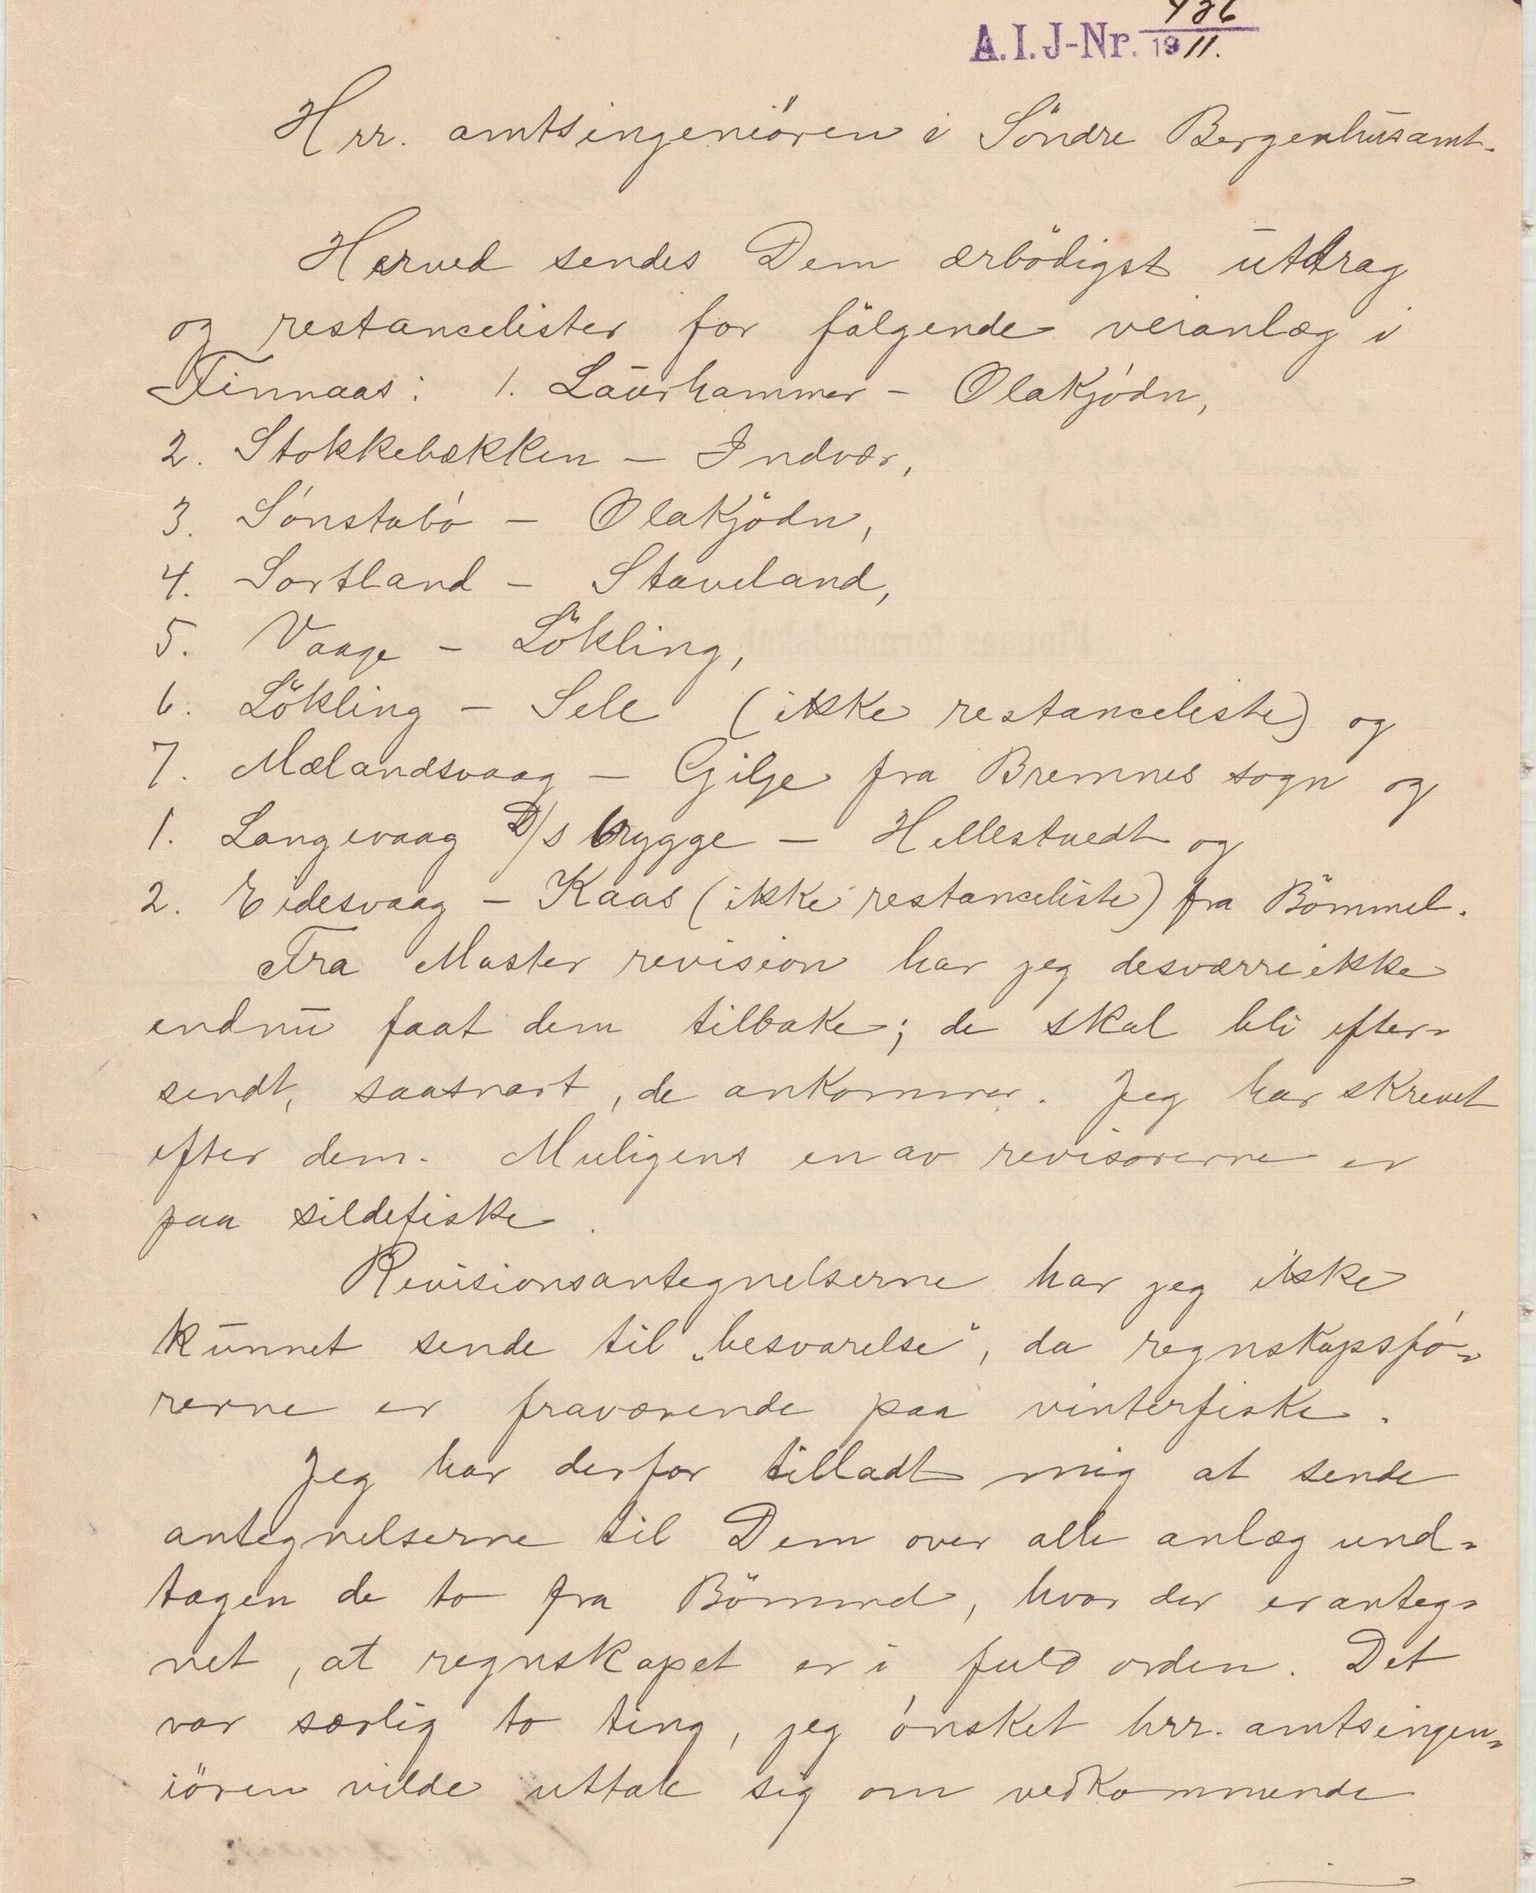 A.I.J-Nr. 426/1911.
Hrr. amtsingeniören i Söndre Bergenhusamt.
Herved sendes Dem ærbödigst utdrag
og restancelister for fölgende veianlæg i
Finnaas: 1. Laurhammer – Olakjödn,
2. Stokkebækken – Indvær,
3. Sönstabö – Olakjödn,
4. Sortland – Staveland,
5. Vaage – Lökling,
6. Lökling – Sele (ikke restanceliste) og
7. Mælandsvaag – Gilje fra Bremnes sogn og
1. Langevaag D/S brygge – Hellestvedt og
2. Eidesvaag – Kaas (ikke restanceliste) fra Bömmel.
Fra Moster revision har jeg desværre ikke
endnu faat dem tilbake; de skal bli efter-
sendt, saasnart, de ankommer. Jeg har skrevet
efter dem. Muligens en av revisorerne er
paa sildefiske.
Revisionsantegnelserne har jeg ikke
kunnet sende til „besvarelse", da regnskapsfö-
rerne er fraværende paa vinterfiske.
Jeg har derfor tilladt mig at sende
antegnelserne til Dem over alle anlæg und-
tagen de to fra Bömmel, hvor der er anteg-
net, at regnskapet er i fuld orden. Det
var særlig to ting, jeg önsket hrr. amtsingen-
iören vilde uttale sig om vedkommende